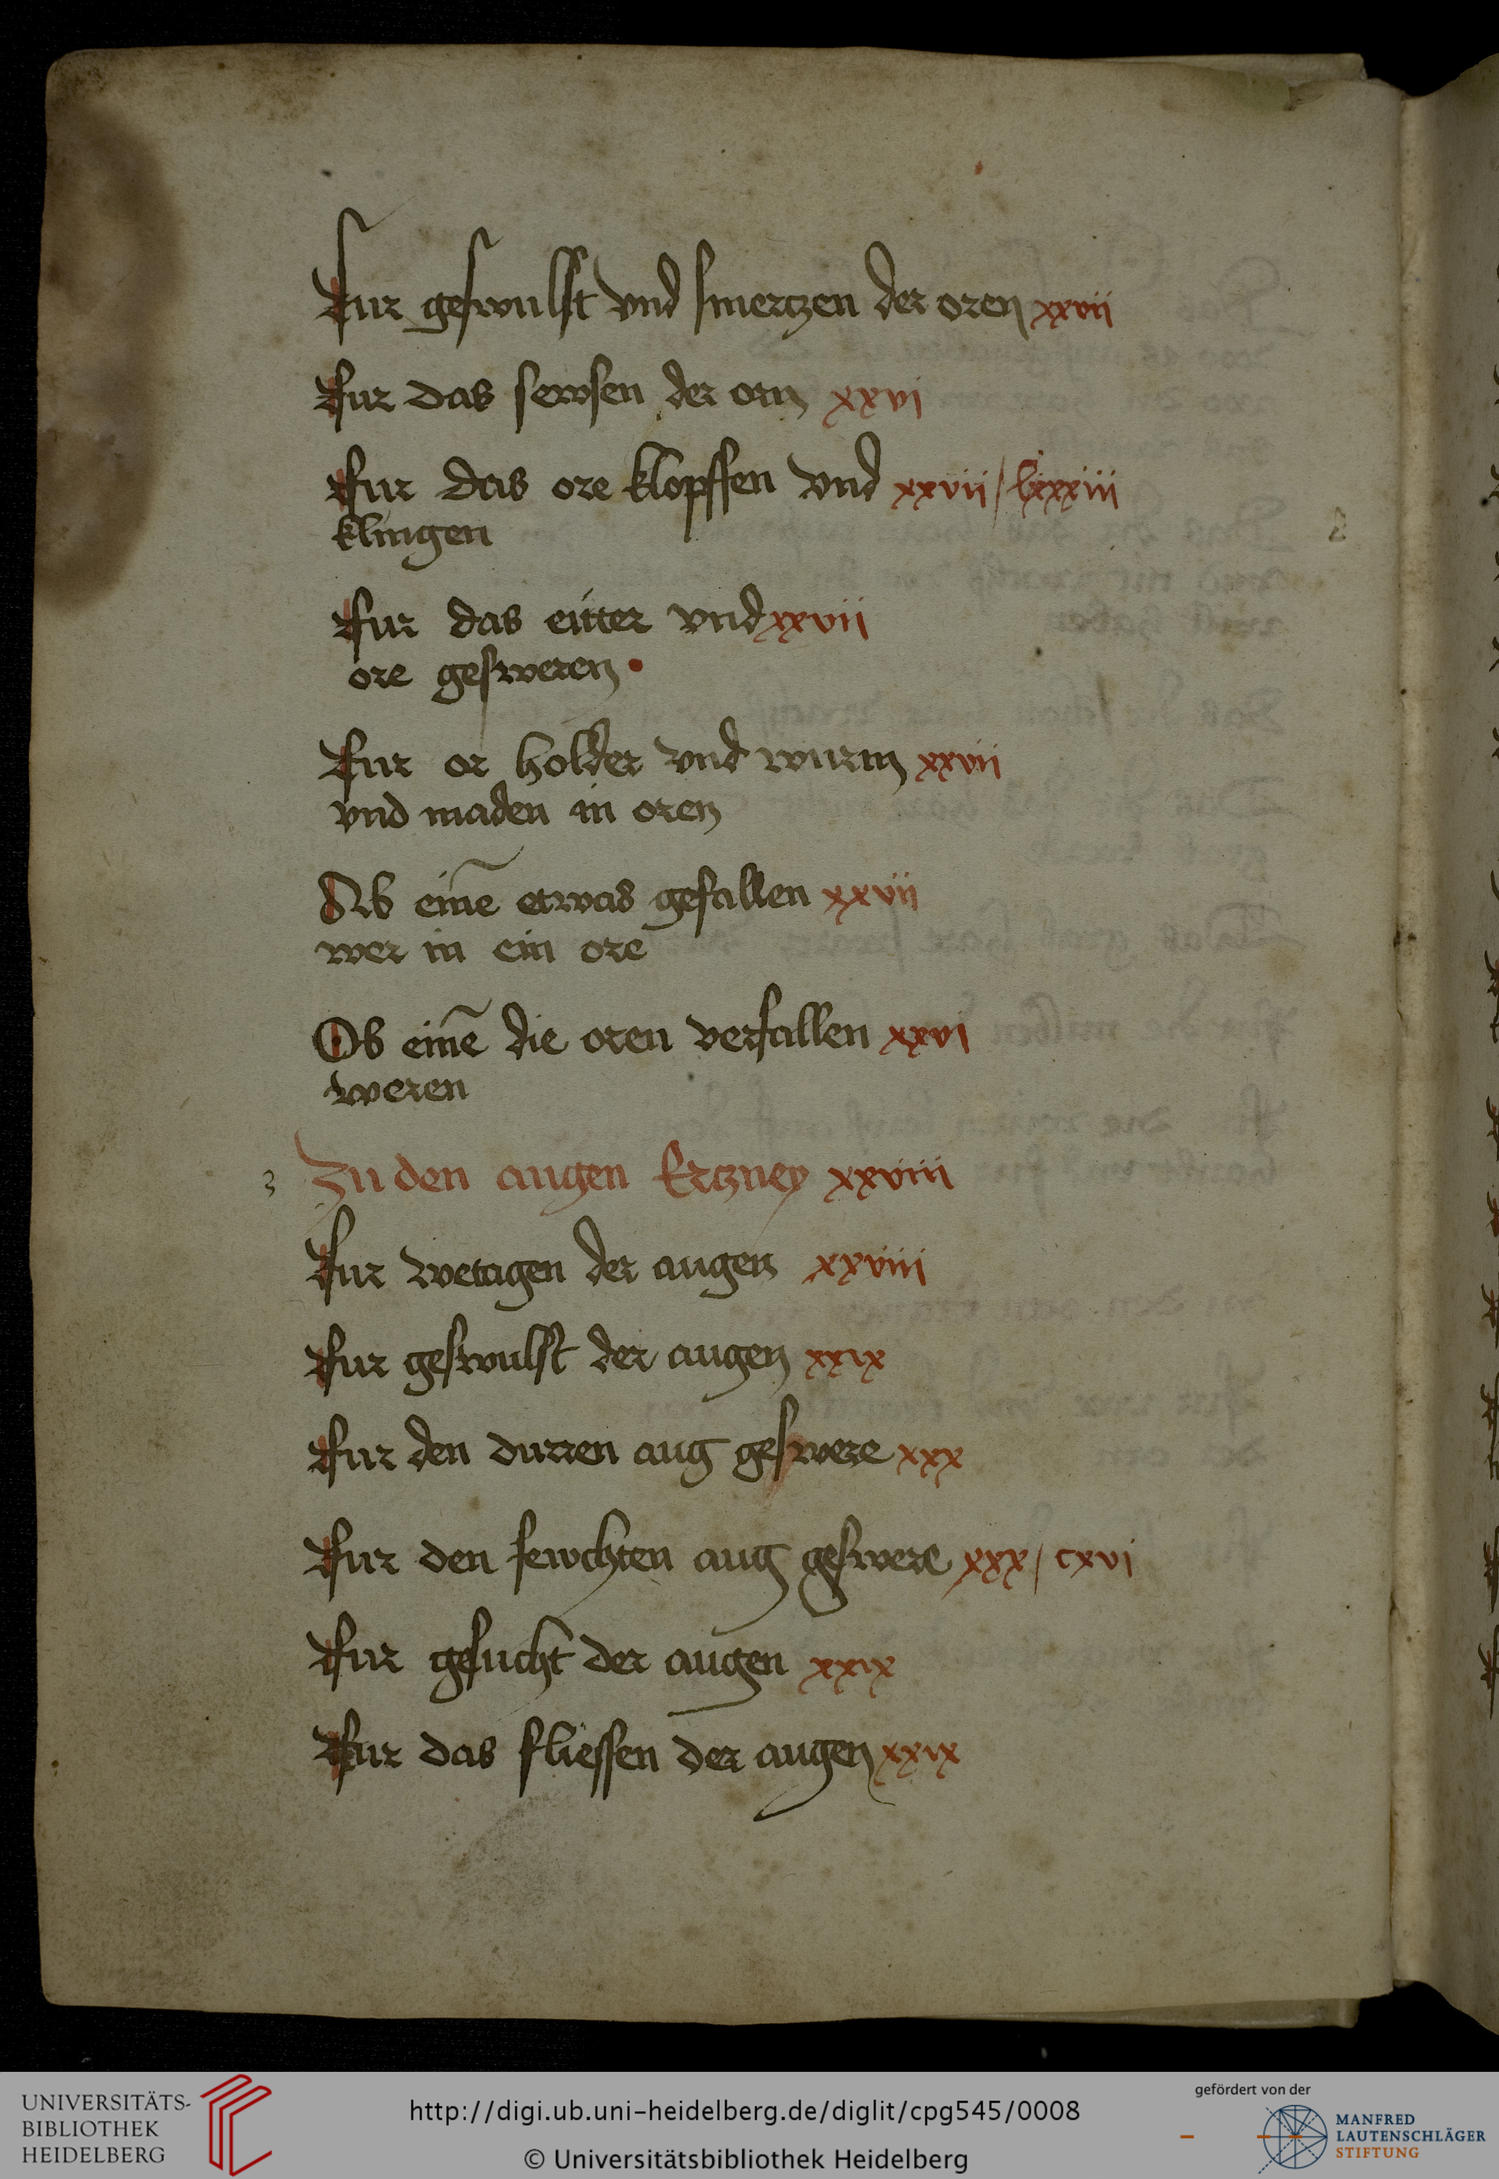 Fur geswulst vnd smertzen der oren xxvii
Fur das sewsen der orn xxvi
Fur das ore klopffen vnd xxvii / lxxxiii
klingen
Fur das eitter vnd xxvii
ore gesweren •
Fur or holder vnd wurm xxvii
vnd maden in oren
Ob eine͂ etwas gefallen xxvii
wer in ein ore
Ob eine͂ die oren verfallen xxvi
weren
3 Zu den augen Ertzney xxviii
Fur wetagen der augen xxviii
Fur geswulst der augen xxix
Fur den durren aug geswere xxx
Fur den fewchten aug geswere xxx / cxvi
Fur gesucht der augen xxix
Fur das fliessen der augen xxix
UNIVERSITÄTS-
BIBLIOTHEK
HEIDELBERG
http://digi.ub.uni-heidelberg.de/diglit/cpg545/0008
© Universitätsbibliothek Heidelberg
gefördert von der
MANFRED
LAUTENSCHLÄGER
STIFTUNG